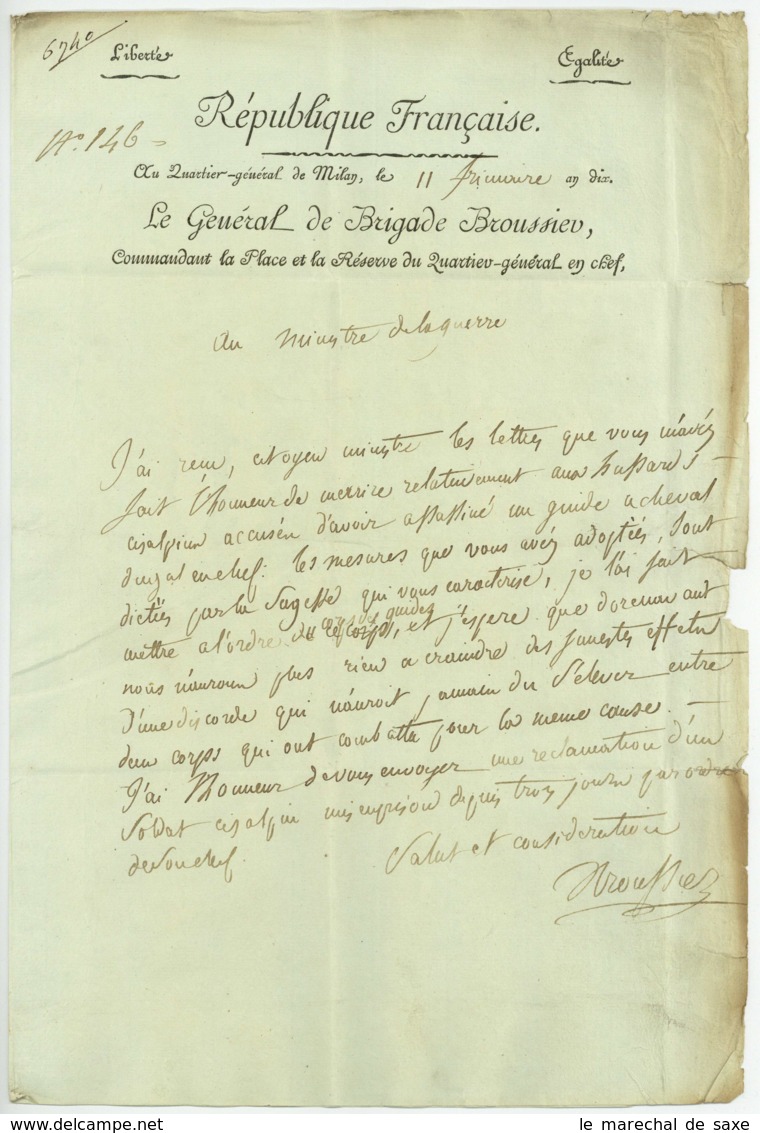 6740
Liberté Egalité
République Française.
N.° 146 =
Au Quartier-général de Milan, le 11 frimaire an dix.
Le Général de Brigade Broussier,
Commandant la Place et la Réserve du Quartier-général en chef,
au ministre de la guerre
J'ai recu, citoyen ministre les lettres que vous m'avéz
fait l'honneur de mecrire relativement aux hussards
cisalpins accusés d'avoir assassiné un guide a cheval
du g.al en chef. les mesures que vous avéz adoptées, sont
dictées par la Sagesse qui vous caracterise, je l'ai fait
mettre a l'ordre du corps des guides, et j'espere que dorenavant
nous n'aurons plus rien a craindre des funestes effets
d'une discorde qui n'auroit jamais du s'elever entre
deux corps qui ont combattu pour la meme cause. —
J'ai l'honneur de vous envoyer une reclamation d'un
Soldat cisalpin mis en prison depuis trois jours par ordre
de son chef. Salut et consideration
Broussier
www.delcampe.net le marechal de saxe